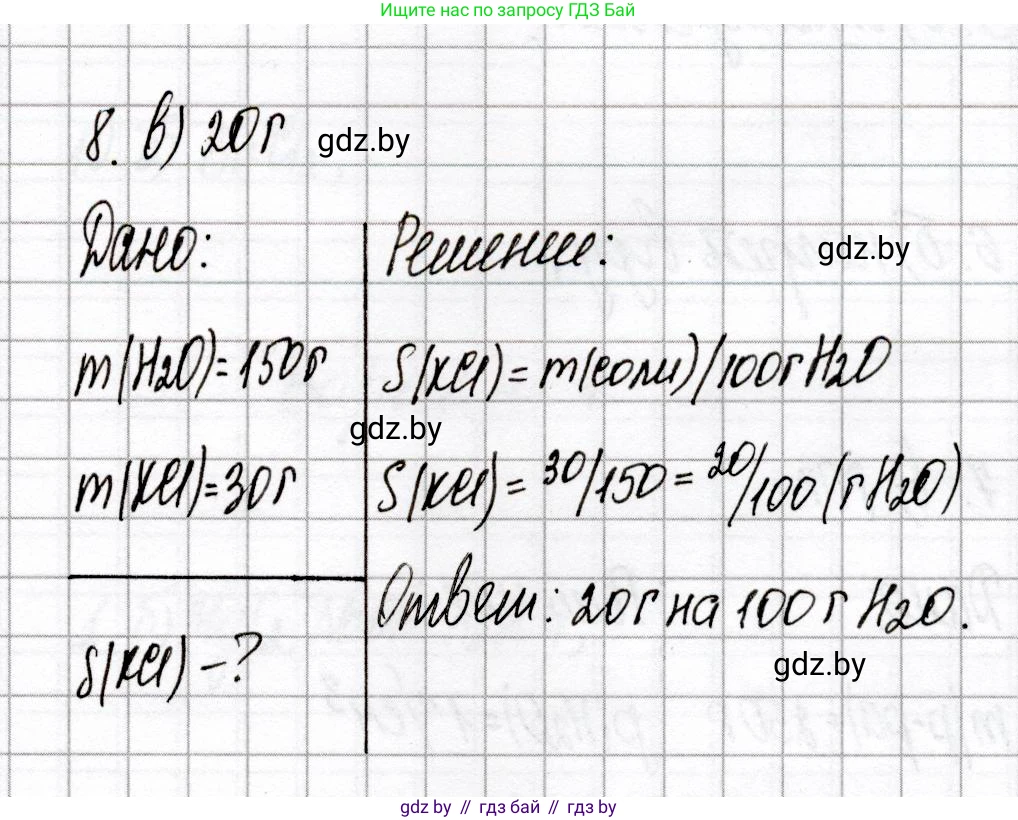 Ищите нас по запросу ГДЗ Бай
8. в) 20 г
gdz.by
Дано:
Решение:
gdz.by
m(H2O)=150г
S(KCl) = m(соли)/100г H2O
gdz.by
m(KCl)=30г
S(KCl) = 30/150 = 20/100 (г H2O)
Ответ: 20г на 100 г H2O.
S(KCl) – ?
gdz.by
gdz.by // гдз бай // гдз by